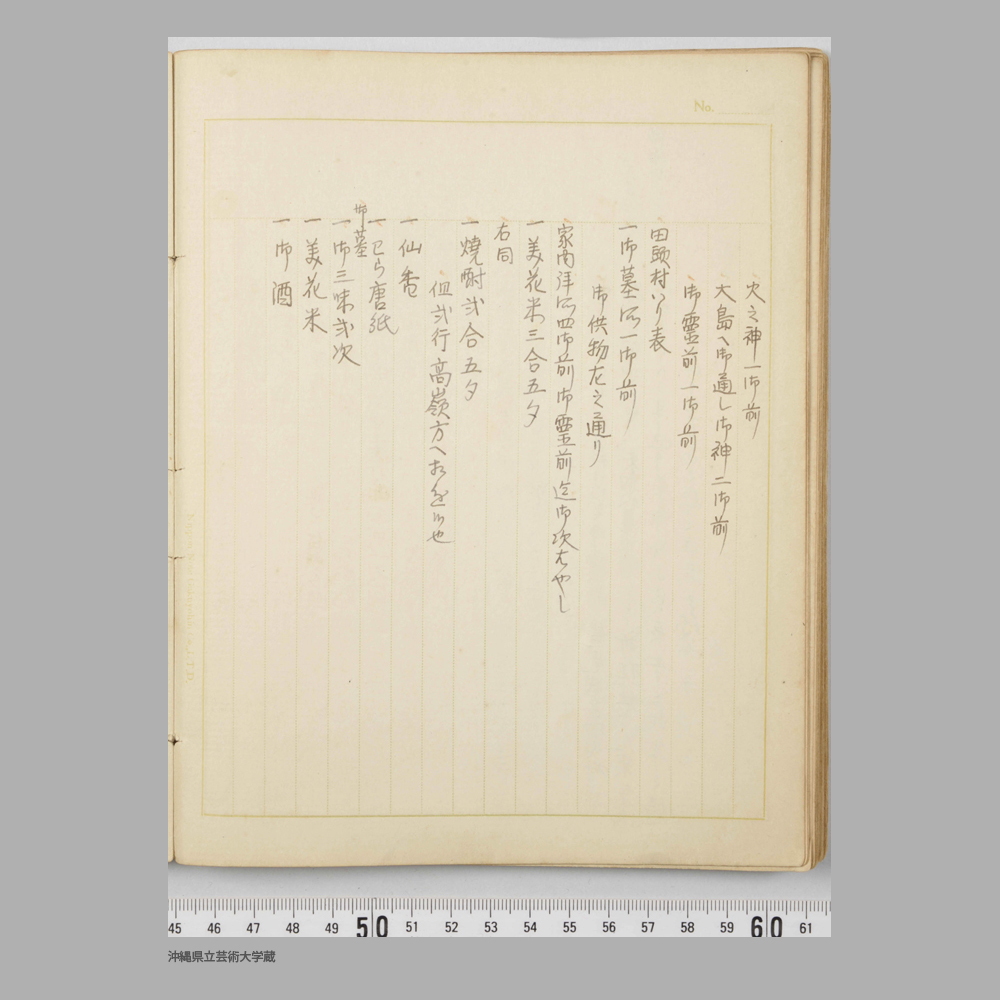 No.
火之神一御前
大島へ御通し御神二御前
御霊前一御前
田頭村いり表
一御墓所一御前
御供物左之通り
家内拝所四御前御霊前迄御次
一美花米三合五夕
右同
一焼酎弐合五夕
但弐行高嶺方へ
也
一仙香
唐紙
御墓
一御三味弐次
一美花米
一御酒
45 46 47 48 49 50 51 52 53 54 55 56 57 58 59 60 61
沖縄県立芸術大学蔵